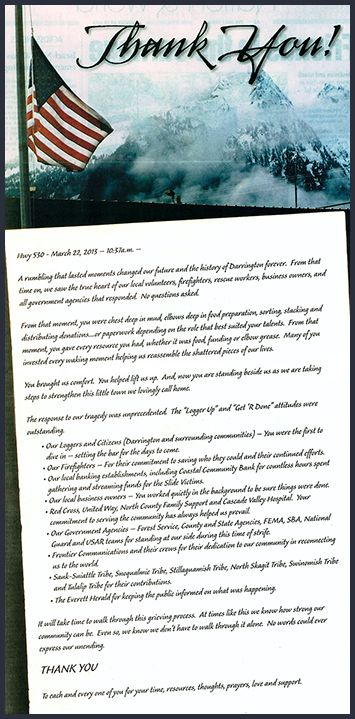 Thank You!
Hwy 530 - March 22, 2013 – 10:37a.m. –
A rumbling that lasted moments changed our future and the history of Darrington forever. From that
time on, we saw the true heart of our local volunteers, firefighters, rescue workers, business owners, and
all government agencies that responded. No questions asked.
From that moment, you were chest deep in mud, elbows deep in food preparation, sorting, stacking and
distributing donations....or paperwork depending on the role that best suited your talents. From that
moment, you gave every resource you had, whether it was food, funding or elbow grease. Many of you
invested every waking moment helping us reassemble the shattered pieces of our lives.
You brought us comfort. You helped lift us up. And, now you are standing beside us as we are taking
steps to strengthen this little town we lovingly call home.
The response to our tragedy was unprecedented. The "Logger Up" and "Get 'R Done" attitudes were
outstanding.
• Our Loggers and Citizens (Darrington and surrounding communities) – You were the first to
dive in – setting the bar for the days to come.
• Our Firefighters – For their commitment to saving who they could and their continued efforts.
• Our local banking establishments, including Coastal Community Bank for countless hours spent
gathering and streaming funds for the Slide Victims.
• Our local business owners – You worked quietly in the background to be sure things were done.
• Red Cross, United Way, North County Family Support and Cascade Valley Hospital. Your
commitment to serving the community has always helped us prevail.
• Our Government Agencies – Forest Service, County and State Agencies, FEMA, SBA, National
Guard and USAR teams for standing at our side during this time of strife.
• Frontier Communications and their crews for their dedication to our community in reconnecting
us to the world.
• Sauk-Suiattle Tribe, Snoqualmie Tribe, Stillaguamish Tribe, North Skagit Tribe, Swinomish Tribe
and Tulalip Tribe for their contributions.
• The Everett Herald for keeping the public informed on what was happening.
It will take time to walk through this grieving process. At times like this we know how strong our
community can be. Even so, we know we don't have to walk through it alone. No words could ever
express our unending.
THANK YOU
To each and every one of you for your time, resources, thoughts, prayers, love and support.